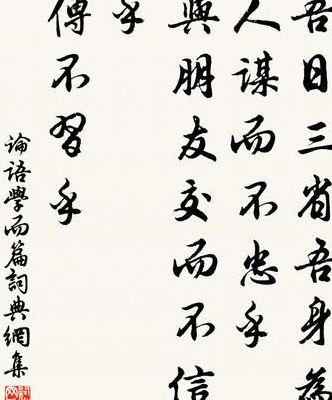 吾日三省吾身為
人謀而不忠乎
與朋友交而不信
乎
傳不習乎
論語學而篇詞典網集